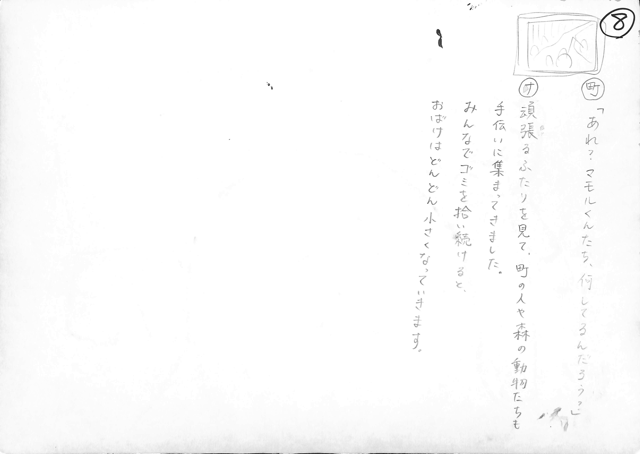 ⑧
町
「あれ?マモルくんたち、何してるんだろう?」
す
頑張るふたりを見て、町の人や森の動物たちも
手伝いに集まってきました。
みんなでゴミを拾い続けると、
おばけはどんどん小さくなっていきます。